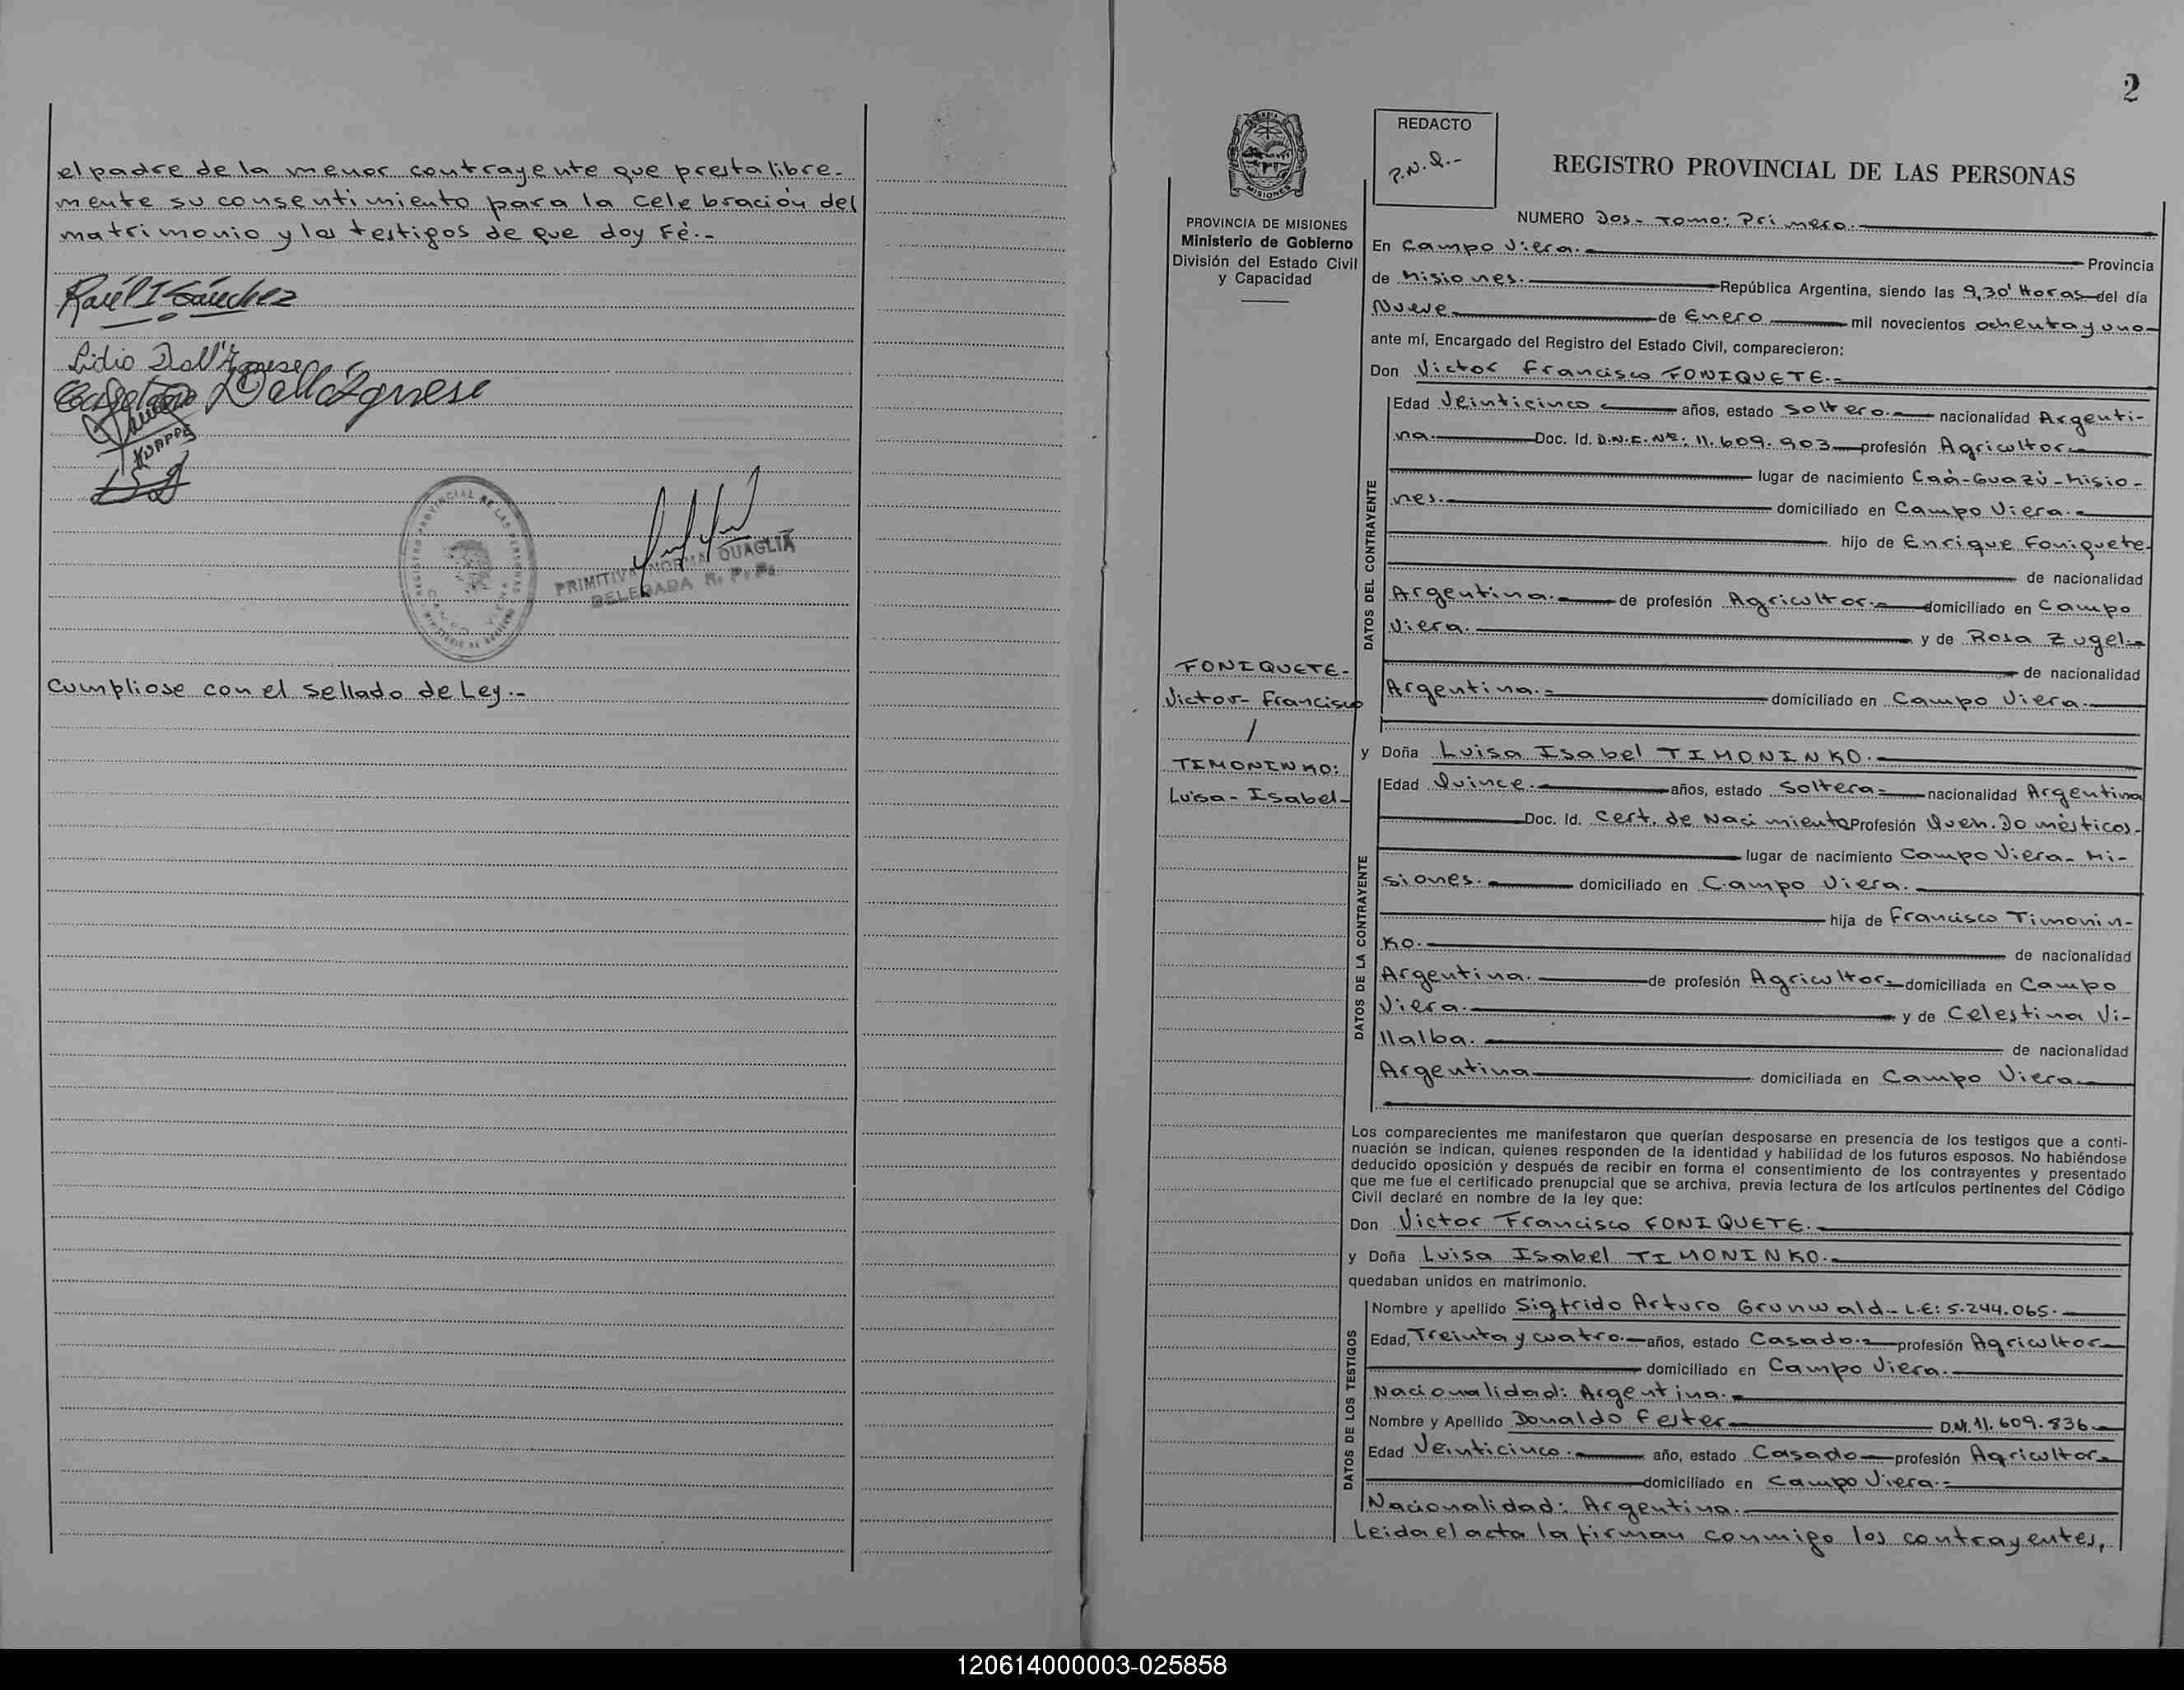 el padre de la menor contrayente que presta libre-
mente su consentimiento para la celebración del
matrimonio y los testigos de que doy Fè.-
Raúl I Sánchez
Lidio Dall'Agnese
Dall'Agnese
KNAPPE
PRIMITIVA NORMA QUAGLIA
DELEGADA R. P. Ps.
Cumpliose con el sellado de Ley.-
2
REDACTO
P.N.Q.-
REGISTRO PROVINCIAL DE LAS PERSONAS
PROVINCIA DE MISIONES
Ministerio de Gobierno
División del Estado Civil
y Capacidad
NUMERO Dos- Tomo: Primero.-
En Campo Viera.- Provincia
de Misiones.- República Argentina, siendo las 9,30' Horas del día
Nueve de Enero mil novecientos ochenta y uno-
ante mí, Encargado del Registro del Estado Civil, comparecieron:
Don Victor Francisco FONIQUETE.-
DATOS DEL CONTRAYENTE
Edad Veinticinco años, estado soltero.- nacionalidad Argenti-
na.- Doc. Id. D.N.I. Nº: 11.609.903 profesión Agricultor.-
lugar de nacimiento Caá-Guazú-Misio-
nes.- domiciliado en Campo Viera.-
hijo de Enrique Foniquete-
de nacionalidad
Argentina.- de profesión Agricultor.- domiciliado en Campo
Viera.- y de Rosa Zugel.-
de nacionalidad
Argentina.- domiciliado en Campo Viera.-
FONIQUETE-
Victor- Francisco
/
TIMONINKO:
Luisa- Isabel-
y Doña Luisa Isabel TIMONINKO.-
DATOS DE LA CONTRAYENTE
Edad Quince.- años, estado Soltera- nacionalidad Argentina
Doc. Id. Cert. de Nacimiento Profesión Queh. Domèsticos-
lugar de nacimiento Campo Viera- Mi-
siones.- domiciliado en Campo Viera.-
hija de Francisco Timonin-
ko.- de nacionalidad
Argentina.- de profesión Agricultor- domiciliada en Campo
Viera.- y de Celestina Vi-
llalba.- de nacionalidad
Argentina domiciliada en Campo Viera-
Los comparecientes me manifestaron que querían desposarse en presencia de los testigos que a conti-
nuación se indican, quienes responden de la identidad y habilidad de los futuros esposos. No habiéndose
deducido oposición y después de recibir en forma el consentimiento de los contrayentes y presentado
que me fue el certificado prenupcial que se archiva, previa lectura de los artículos pertinentes del Código
Civil declaré en nombre de la ley que:
Don Victor Francisco FONIQUETE.-
y Doña Luisa Isabel TIMONINKO.-
quedaban unidos en matrimonio.
DATOS DE LOS TESTIGOS
Nombre y apellido Sigfrido Arturo Grunwald- L.E: 5.244.065.-
Edad, Treinta y cuatro.- años, estado Casado.- profesión Agricultor-
domiciliado en Campo Viera.-
Nacionalidad: Argentina.-
Nombre y Apellido Donaldo Fester- D.N. 11.609.836.-
Edad Veinticinco.- año, estado Casado- profesión Agricultor-
domiciliado en Campo Viera.-
Nacionalidad: Argentina.-
Leida el acta la firman conmigo los contrayentes,
120614000003-025858